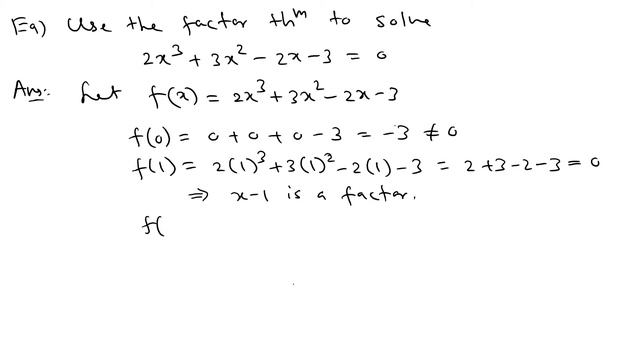 Eg) Use the factor thᵐ to solve
2x³ + 3x² - 2x - 3 = 0
Ans:. Let f(x) = 2x³ + 3x² - 2x - 3
f(0) = 0 + 0 + 0 - 3 = -3 ≠ 0
f(1) = 2(1)³ + 3(1)² - 2(1) - 3 = 2 + 3 - 2 - 3 = 0
⇒ x - 1 is a factor.
f(